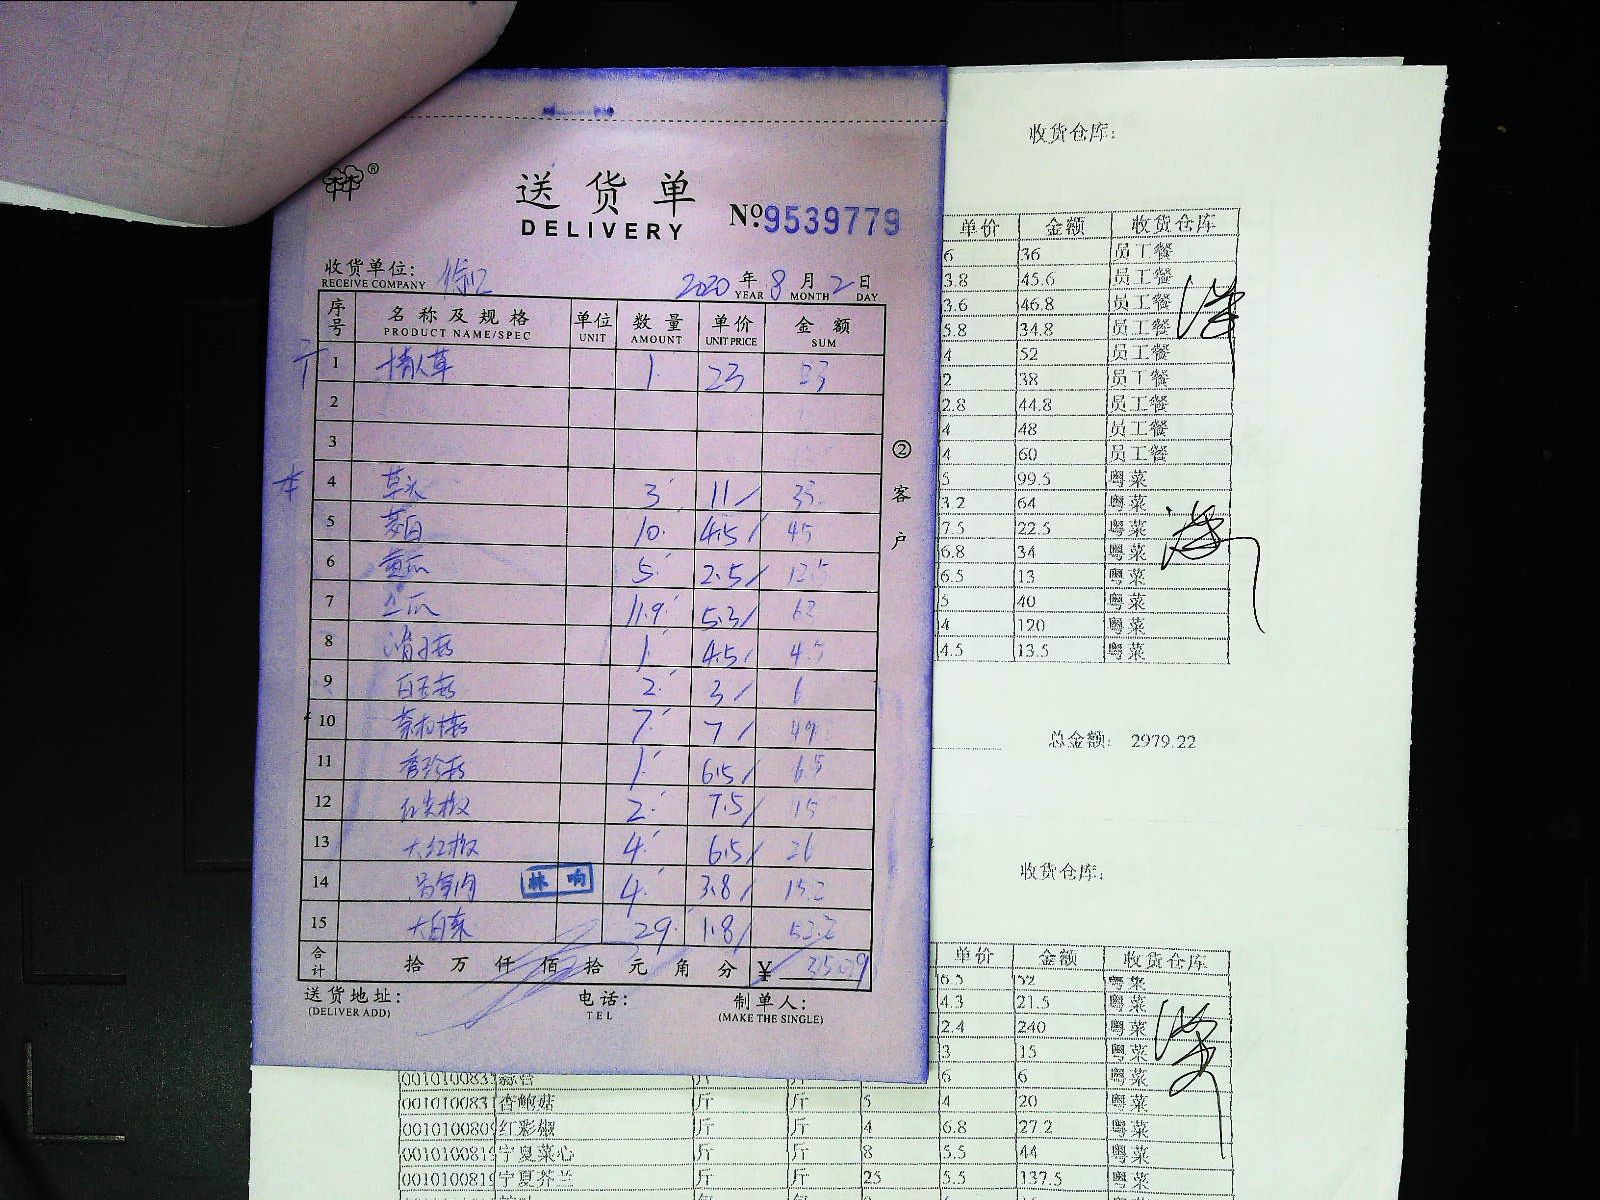 收货仓库:
®
送货单
DELIVERY
№:9539779
收货单位:
RECEIVE COMPANY
2020 年 8 月 2 日
YEAR MONTH DAY
序号 名称及规格 单位 数量 单价 金额
PRODUCT NAME/SPEC UNIT AMOUNT UNIT PRICE SUM
1 情人草 1 23 23
2
3
4 草头 3 11 33
5 茭白 10 4.5 45
6 黄瓜 5 2.5 12.5
7 11.9 5.3 62
8 1 4.5 4.5
9 白玉菇 2 3 6
10 茶树菇 7 7 49
11 香珍菇 1 6.5 6.5
12 红尖椒 2 7.5 15
13 大红椒 4 6.5 26
14 4 3.8 15.2
林响
15 大白菜 29 1.8 52.2
合计 拾万仟佰拾元角分 ¥ 350.9
送货地址: 电话: 制单人:
(DELIVER ADD) TEL (MAKE THE SINGLE)
②客户
单价 金额 收货仓库
6 36 员工餐
3.8 45.6 员工餐
3.6 46.8 员工餐
5.8 34.8 员工餐
4 52 员工餐
2 38 员工餐
2.8 44.8 员工餐
4 48 员工餐
4 60 员工餐
5 99.5 粤菜
3.2 64 粤菜
7.5 22.5 粤菜
6.8 34 粤菜
6.5 13 粤菜
5 40 粤菜
4 120 粤菜
4.5 13.5 粤菜
总金额: 2979.22
收货仓库:
单价 金额 收货仓库
6.5 52 粤菜
4.3 21.5 粤菜
2.4 240 粤菜
3 15 粤菜
6 6 粤菜
0010100831 杏鲍菇 斤 斤 5 4 20 粤菜
0010100809 红彩椒 斤 斤 4 6.8 27.2 粤菜
0010100815 宁夏菜心 斤 斤 8 5.5 44 粤菜
0010100819 宁夏芥兰 斤 斤 25 5.5 137.5 粤菜